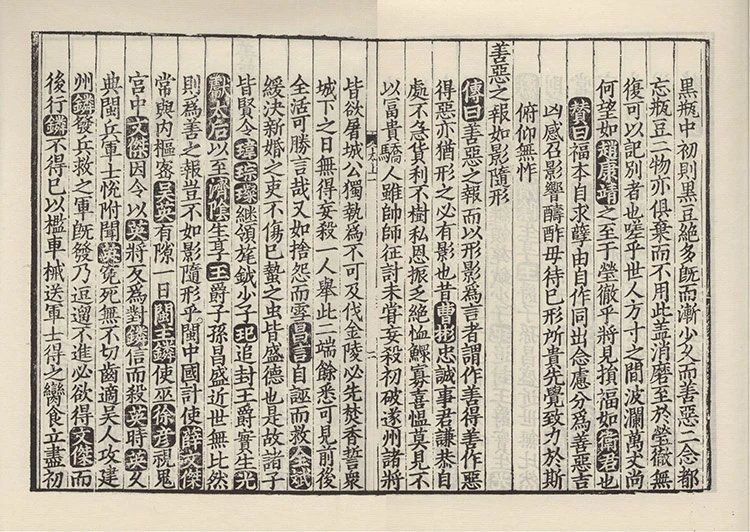 黑瓶中初則黑豆絕多旣而漸少久而善惡二念都
忘瓶豆二物亦俱棄而不用此盖消磨至於瑩徹無
復可以記別者也嗟乎世人方寸之間波瀾萬丈尚
何望如趙康靖之至于瑩徹乎將見損福如衞君也
贊曰福本自求孽由自作同出念慮分爲善惡吉
凶感召影響酧酢毋待已形所貴先覺致力於斯
俯仰無怍
善惡之報如影隨形
傳曰善惡之報而以形影爲言者謂作善得善作惡
得惡亦猶形之必有影也昔曹彬忠誠事君謙恭自
處不急貨利不樹私恩振乏絕恤鰥寡喜愠莫見不
以冨貴驕人雖帥師征討未嘗妄殺初破遂州諸將
上一
二
皆欲屠城公獨執爲不可及伐金陵必先焚香誓衆
城下之日無得妄殺一人舉此二端餘悉可見前後
全活可勝言哉又如捨怨而雪昌言自誣而救全斌
緩決新婚之吏不傷已蟄之虫皆盛德也是故諸子
皆賢令瑋琮璨繼領旄鉞少子玘追封王爵實生光
獻太后以至濟陰生享王爵子孫昌盛近世無比然
則爲善之報豈不如影隨形乎閩中國計使薛文傑
常與内樞宻吳英有隙一日閩主鏻使巫徐彦視鬼
宮中文傑因令以英將反爲對鏻信而殺英時英久
典閩兵軍士恱附聞英寃死無不切齒適吳人攻建
州鏻發兵救之軍旣發乃逗遛不進必欲得文傑而
後行鏻不得已以檻車械送軍士得之臠食立盡初